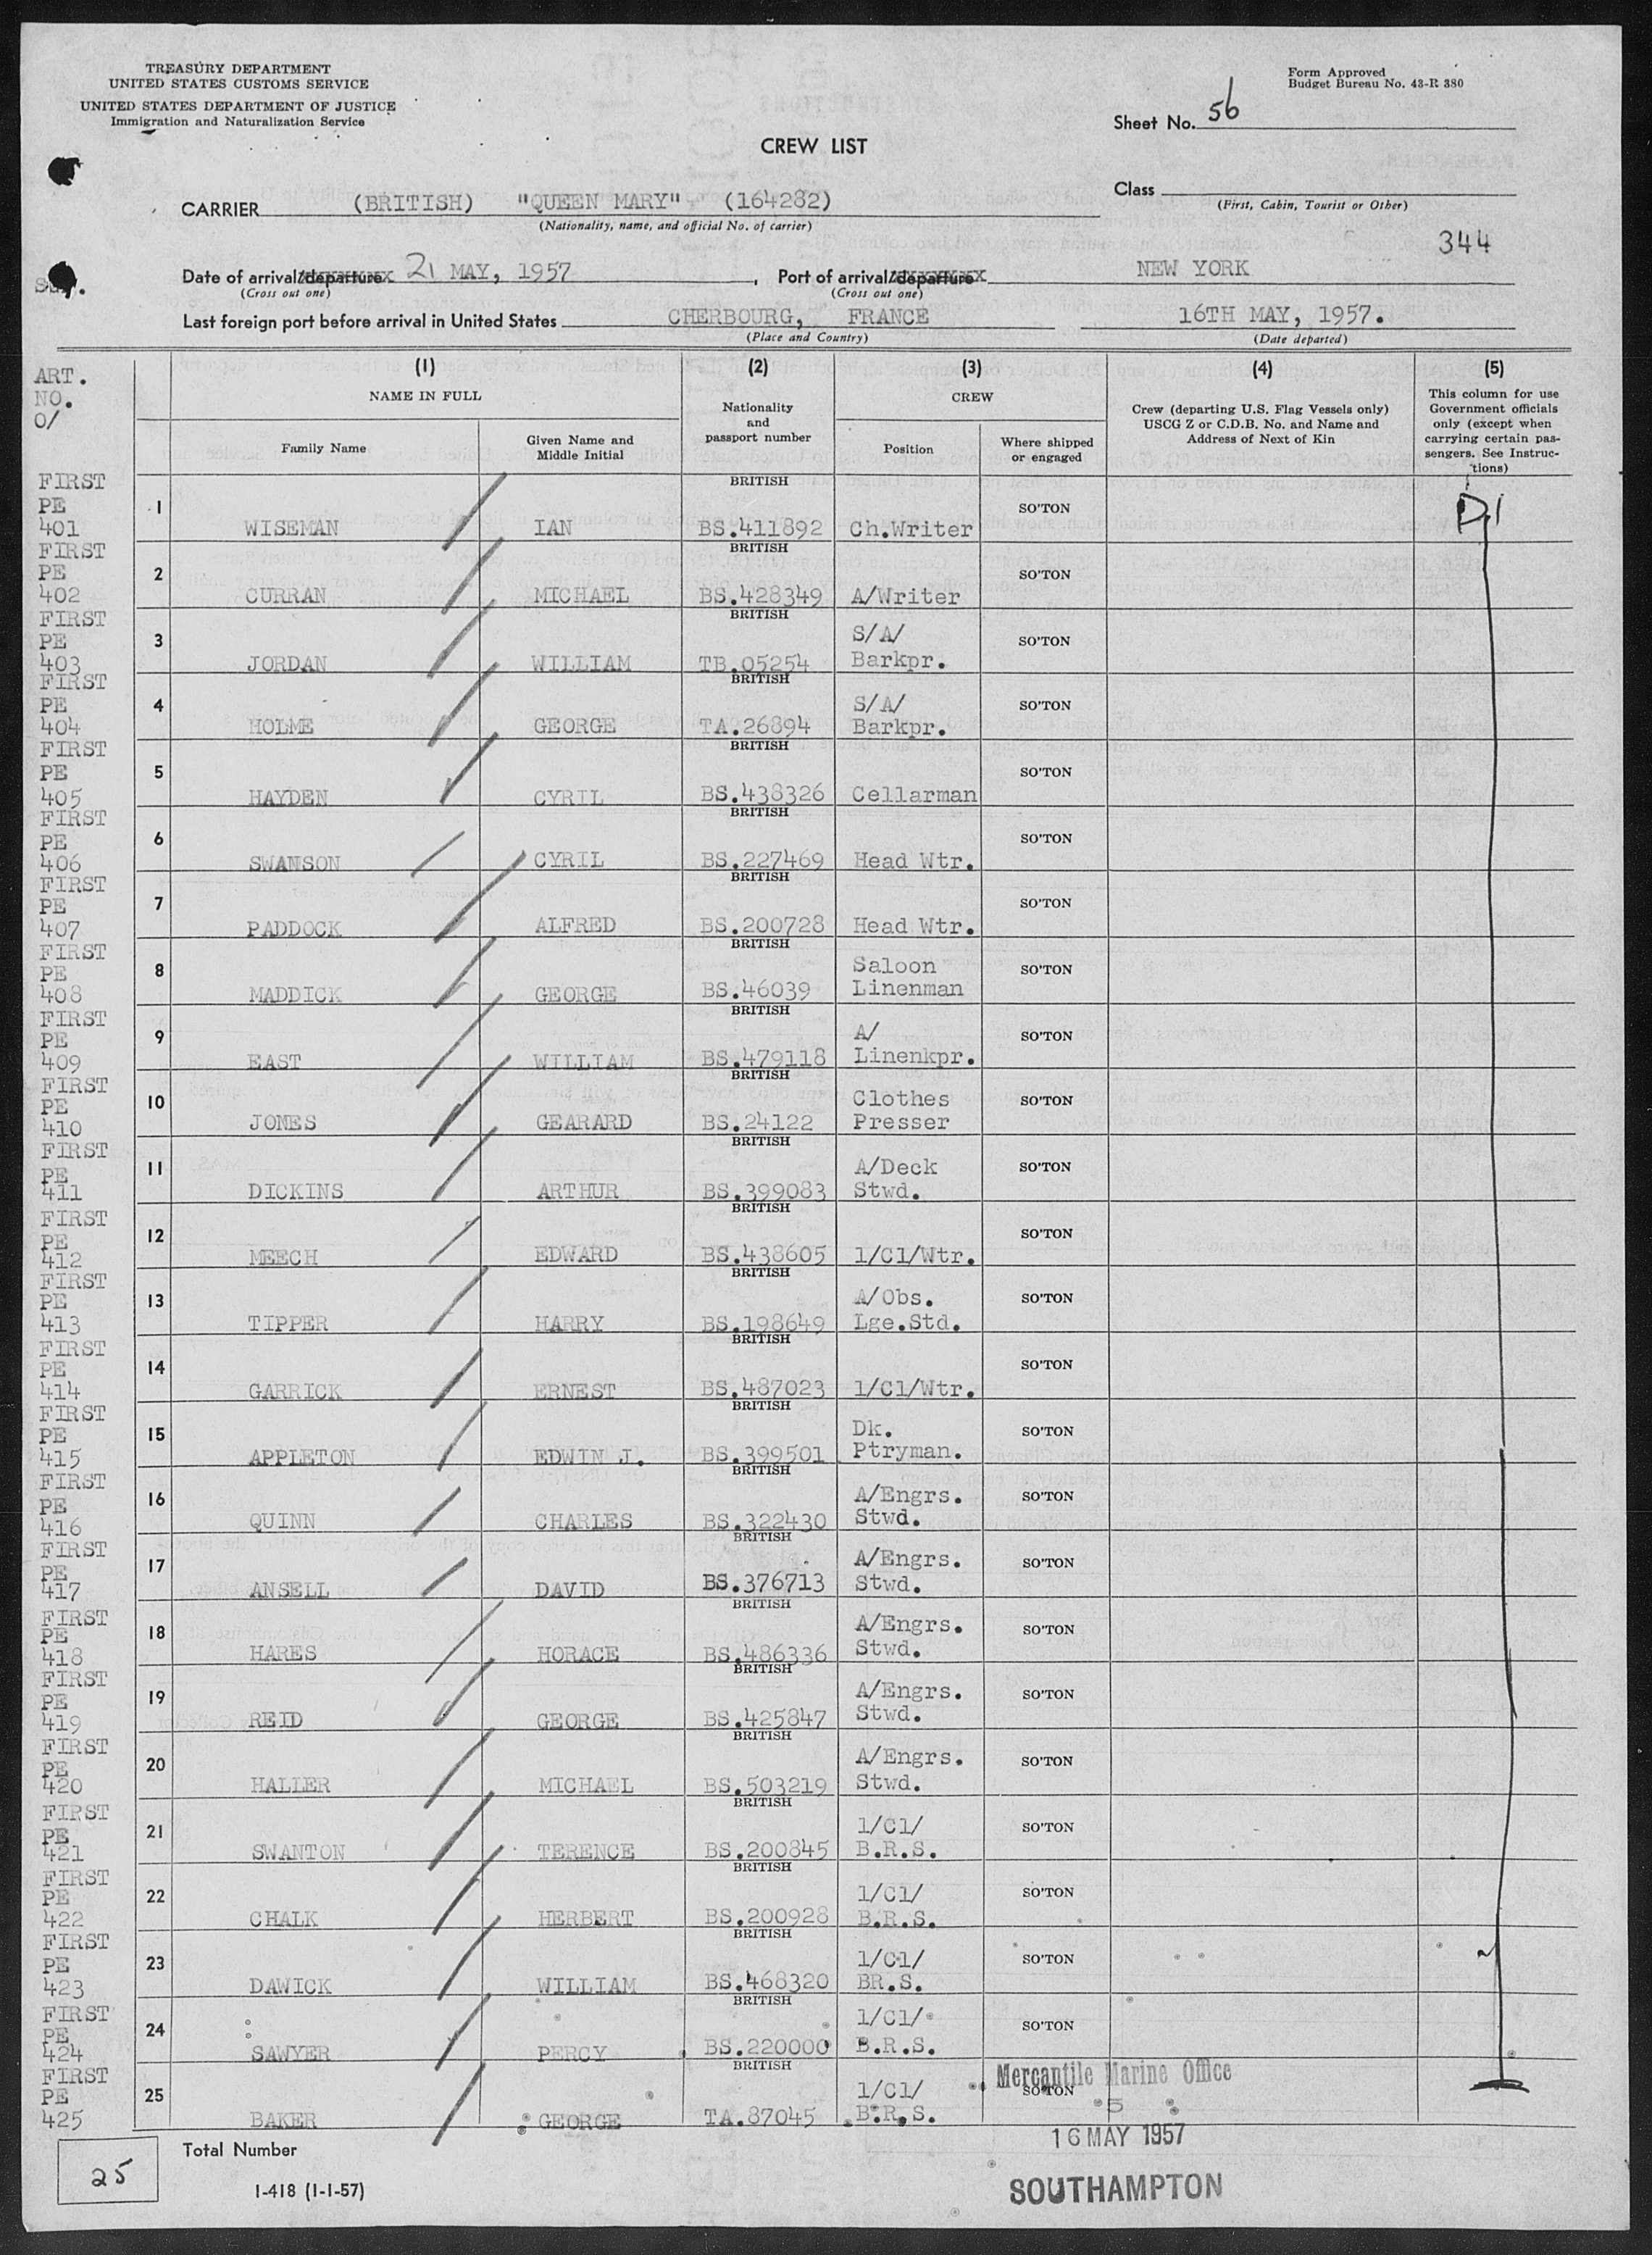 TREASURY DEPARTMENT
UNITED STATES CUSTOMS SERVICE
UNITED STATES DEPARTMENT OF JUSTICE
Immigration and Naturalization Service
Form Approved
Budget Bureau No. 43-R 380
Sheet No. 56
CREW LIST
Class
(First, Cabin, Tourist or Other)
CARRIER (BRITISH) "QUEEN MARY" (164282)
(Nationality, name, and official No. of carrier)
344
Date of arrival/departure 21 MAY, 1957, Port of arrival/departure NEW YORK
(Cross out one) (Cross out one)
Last foreign port before arrival in United States CHERBOURG, FRANCE 16TH MAY, 1957.
(Place and Country) (Date departed)
ART. NO. O/
(1) (2) (3) (4) (5)
NAME IN FULL
Family Name
Given Name and Middle Initial
Nationality and passport number
CREW
Position
Where shipped or engaged
Crew (departing U.S. Flag Vessels only) USCG Z or C.D.B. No. and Name and Address of Next of Kin
This column for use Government officials only (except when carrying certain passengers. See Instructions)
FIRST PE 401 1 WISEMAN IAN BRITISH BS.411892 Ch.Writer SO'TON D1
FIRST PE 402 2 CURRAN MICHAEL BRITISH BS.428349 A/Writer SO'TON
FIRST PE 403 3 JORDAN WILLIAM BRITISH TB.05254 S/A/ Barkpr. SO'TON
FIRST PE 404 4 HOLME GEORGE BRITISH TA.26894 S/A/ Barkpr. SO'TON
FIRST PE 405 5 HAYDEN CYRIL BRITISH BS.438326 Cellarman SO'TON
FIRST PE 406 6 SWANSON CYRIL BRITISH BS.227469 Head Wtr. SO'TON
FIRST PE 407 7 PADDOCK ALFRED BRITISH BS.200728 Head Wtr. SO'TON
FIRST PE 408 8 MADDICK GEORGE BRITISH BS.46039 Saloon Linenman SO'TON
FIRST PE 409 9 EAST WILLIAM BRITISH BS.479118 A/ Linenkpr. SO'TON
FIRST PE 410 10 JONES GEARARD BRITISH BS.24122 Clothes Presser SO'TON
FIRST PE 411 11 DICKINS ARTHUR BRITISH BS.399083 A/Deck Stwd. SO'TON
FIRST PE 412 12 MEECH EDWARD BRITISH BS.438605 1/Cl/Wtr. SO'TON
FIRST PE 413 13 TIPPER HARRY BRITISH BS.198649 A/Obs. Lge.Std. SO'TON
FIRST PE 414 14 GARRICK ERNEST BRITISH BS.487023 1/Cl/Wtr. SO'TON
FIRST PE 415 15 APPLETON EDWIN J. BRITISH BS.399501 Dk. Ptryman. SO'TON
FIRST PE 416 16 QUINN CHARLES BRITISH BS.322430 A/Engrs. Stwd. SO'TON
FIRST PE 417 17 ANSELL DAVID BRITISH BS.376713 A/Engrs. Stwd. SO'TON
FIRST PE 418 18 HARES HORACE BRITISH BS.486336 A/Engrs. Stwd. SO'TON
FIRST PE 419 19 REID GEORGE BRITISH BS.425847 A/Engrs. Stwd. SO'TON
FIRST PE 420 20 HALLER MICHAEL BRITISH BS.503219 A/Engrs. Stwd. SO'TON
FIRST PE 421 21 SWANTON TERENCE BRITISH BS.200845 1/Cl/ B.R.S. SO'TON
FIRST PE 422 22 CHALK HERBERT BRITISH BS.200928 1/Cl/ B.R.S. SO'TON
FIRST PE 423 23 DAWICK WILLIAM BRITISH BS.468320 1/Cl/ BR.S. SO'TON
FIRST PE 424 24 SAWYER PERCY BRITISH BS.220000 1/Cl/ B.R.S. SO'TON
FIRST PE 425 25 BAKER GEORGE BRITISH TA.87045 1/Cl/ B.R.S. SO'TON
Mercantile Marine Office
5
16 MAY 1957
SOUTHAMPTON
25 Total Number
I-418 (1-1-57)